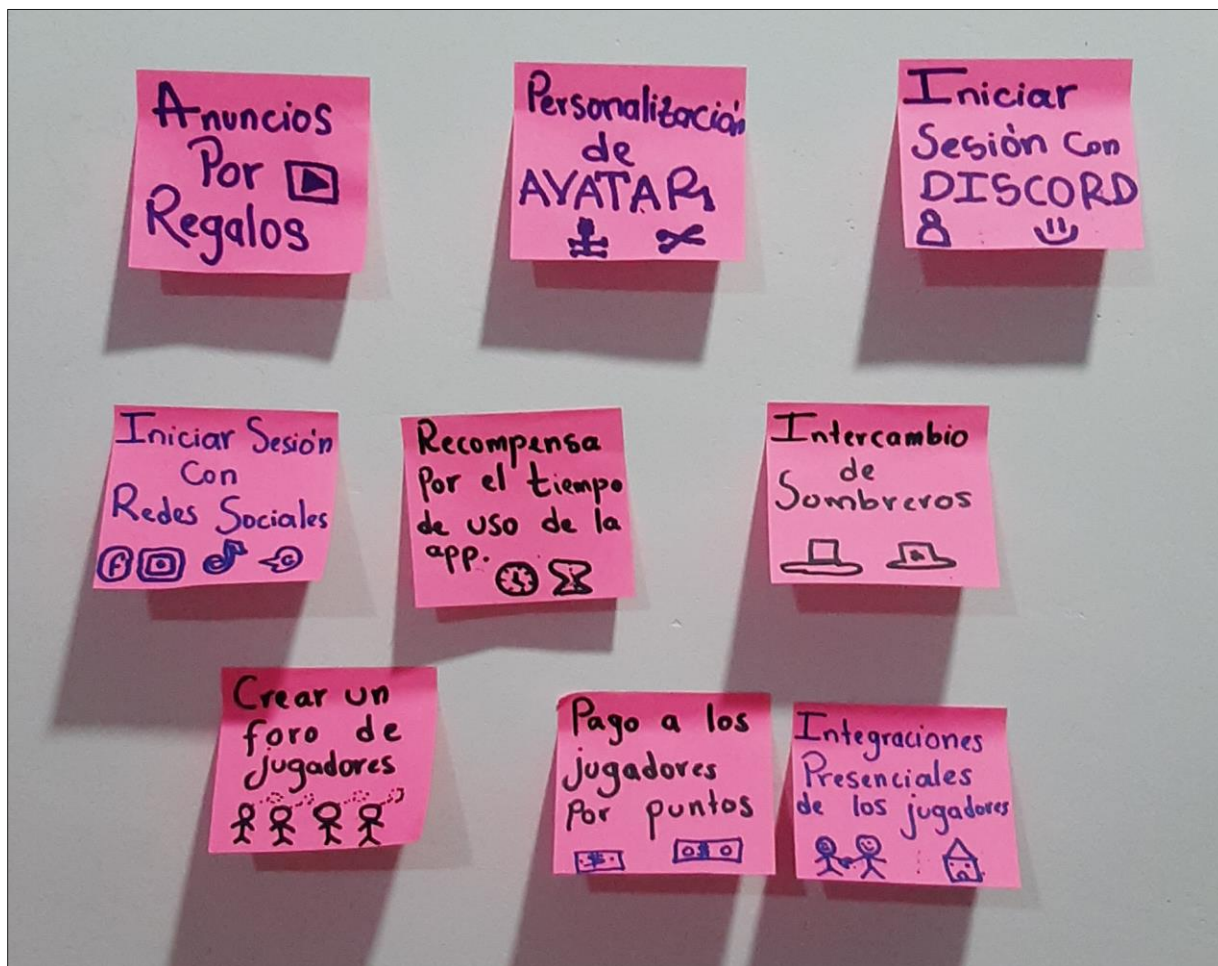 Anuncios
Por
Regalos
Personalización
de
AVATAR
Iniciar
Sesión Con
DISCORD
Iniciar Sesión
Con
Redes Sociales
Recompensa
Por el tiempo
de uso de la
app.
Intercambio
de
Sombreros
Crear un
foro de
jugadores
Pago a los
jugadores
Por puntos
Integraciones
Presenciales
de los jugadores